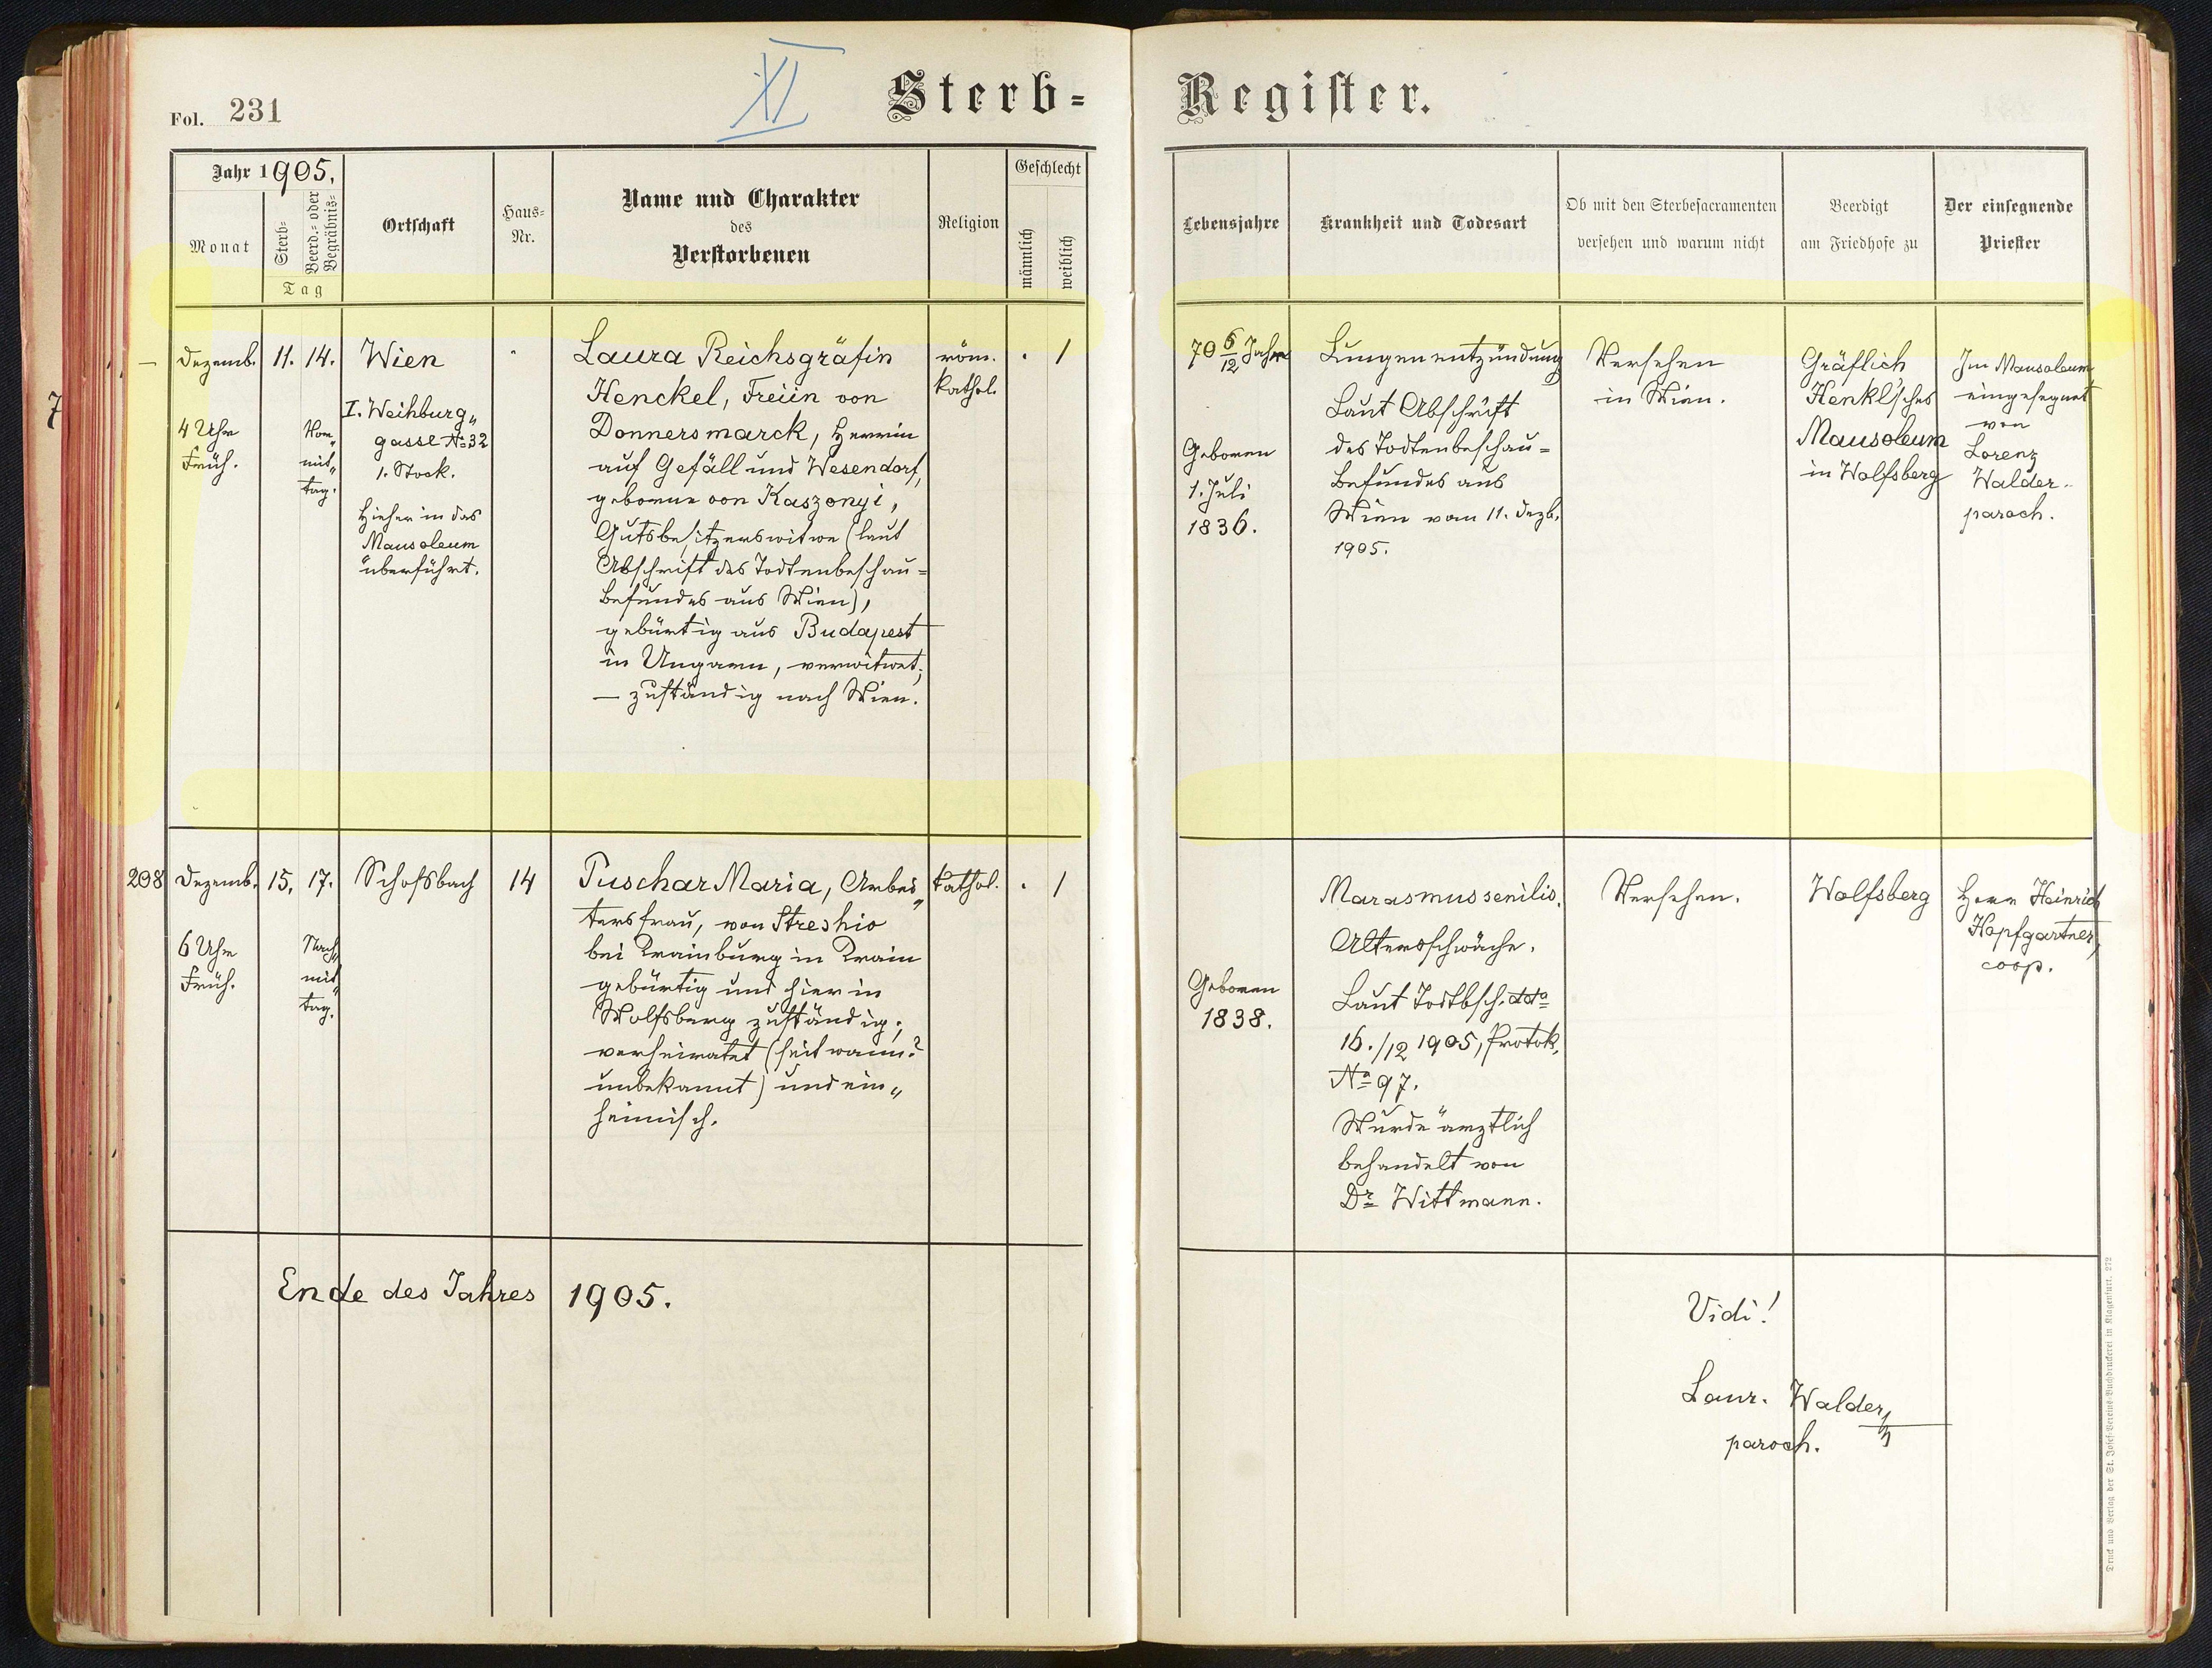 Fol. 231
XI
Sterb-
Register.
Jahr 1905.
Monat
Sterb-
Beerd.- oder Begräbnis-
Tag
Ortschaft
Haus-
Nr.
Name und Charakter
des
Verstorbenen
Religion
Geschlecht
männlich
weiblich
Lebensjahre
Krankheit und Todesart
Ob mit den Sterbesacramenten
versehen und warum nicht
Beerdigt
am Friedhofe zu
Der einsegnende
Priester
7
—
Dezemb.
4 Uhr
Früh.
11.
14.
Vor„
mit„
tag.
Wien
I. Weihburg„
gasse No 32
1. Stock.
Hieher in das
Mausoleum
überführt.
Laura Reichsgräfin
Henckel, Freiin von
Donnersmarck, Herrin
auf Gefäll und Wesendorf,
geborene von Kaszonyi,
Gutsbesitzerswitwe (laut
Abschrift des Todtenbeschau=
befundes aus Wien),
gebürtig aus Budapest
in Ungarn, verwitwet;
— zuständig nach Wien.
röm.
kathol.
. 1
70 6/12 Jahre
Geboren
1. Juli
1836.
Lungenentzündung
Laut Abschrift
des Todtenbeschau=
befundes aus
Wien vom 11. Dezb.
1905.
Versehen
in Wien.
Gräflich
Henkl'sches
Mausoleum
in Wolfsberg
Im Mausoleum
eingesegnet
von
Lorenz
Walder
paroch.
208
Dezemb.
6 Uhr
Früh.
15.
17.
Nach„
mit„
tag.
Schoßbach
14
Puschar Maria, Arbei„
tersfrau, von Streshio
bei Krainburg in Krain
gebürtig und hier in
Wolfsberg zuständig;
verheiratet (seit wann?
unbekannt) und ein„
heimisch.
kathol.
. 1
Geboren
1838.
Marasmus senilis,
Altersschwäche.
Laut Todtbsch. ddo
16./12 1905, Protok.
No 97.
Wurde ärztlich
behandelt von
Dr. Wittmann.
Versehen.
Wolfsberg
Herr Heinrich
Hopfgartner,
coop.
Ende des Jahres 1905.
Vidi!
Laur. Walder
paroch.
Druck und Verlag der St. Josef-Vereins-Buchdruckerei in Klagenfurt. 272